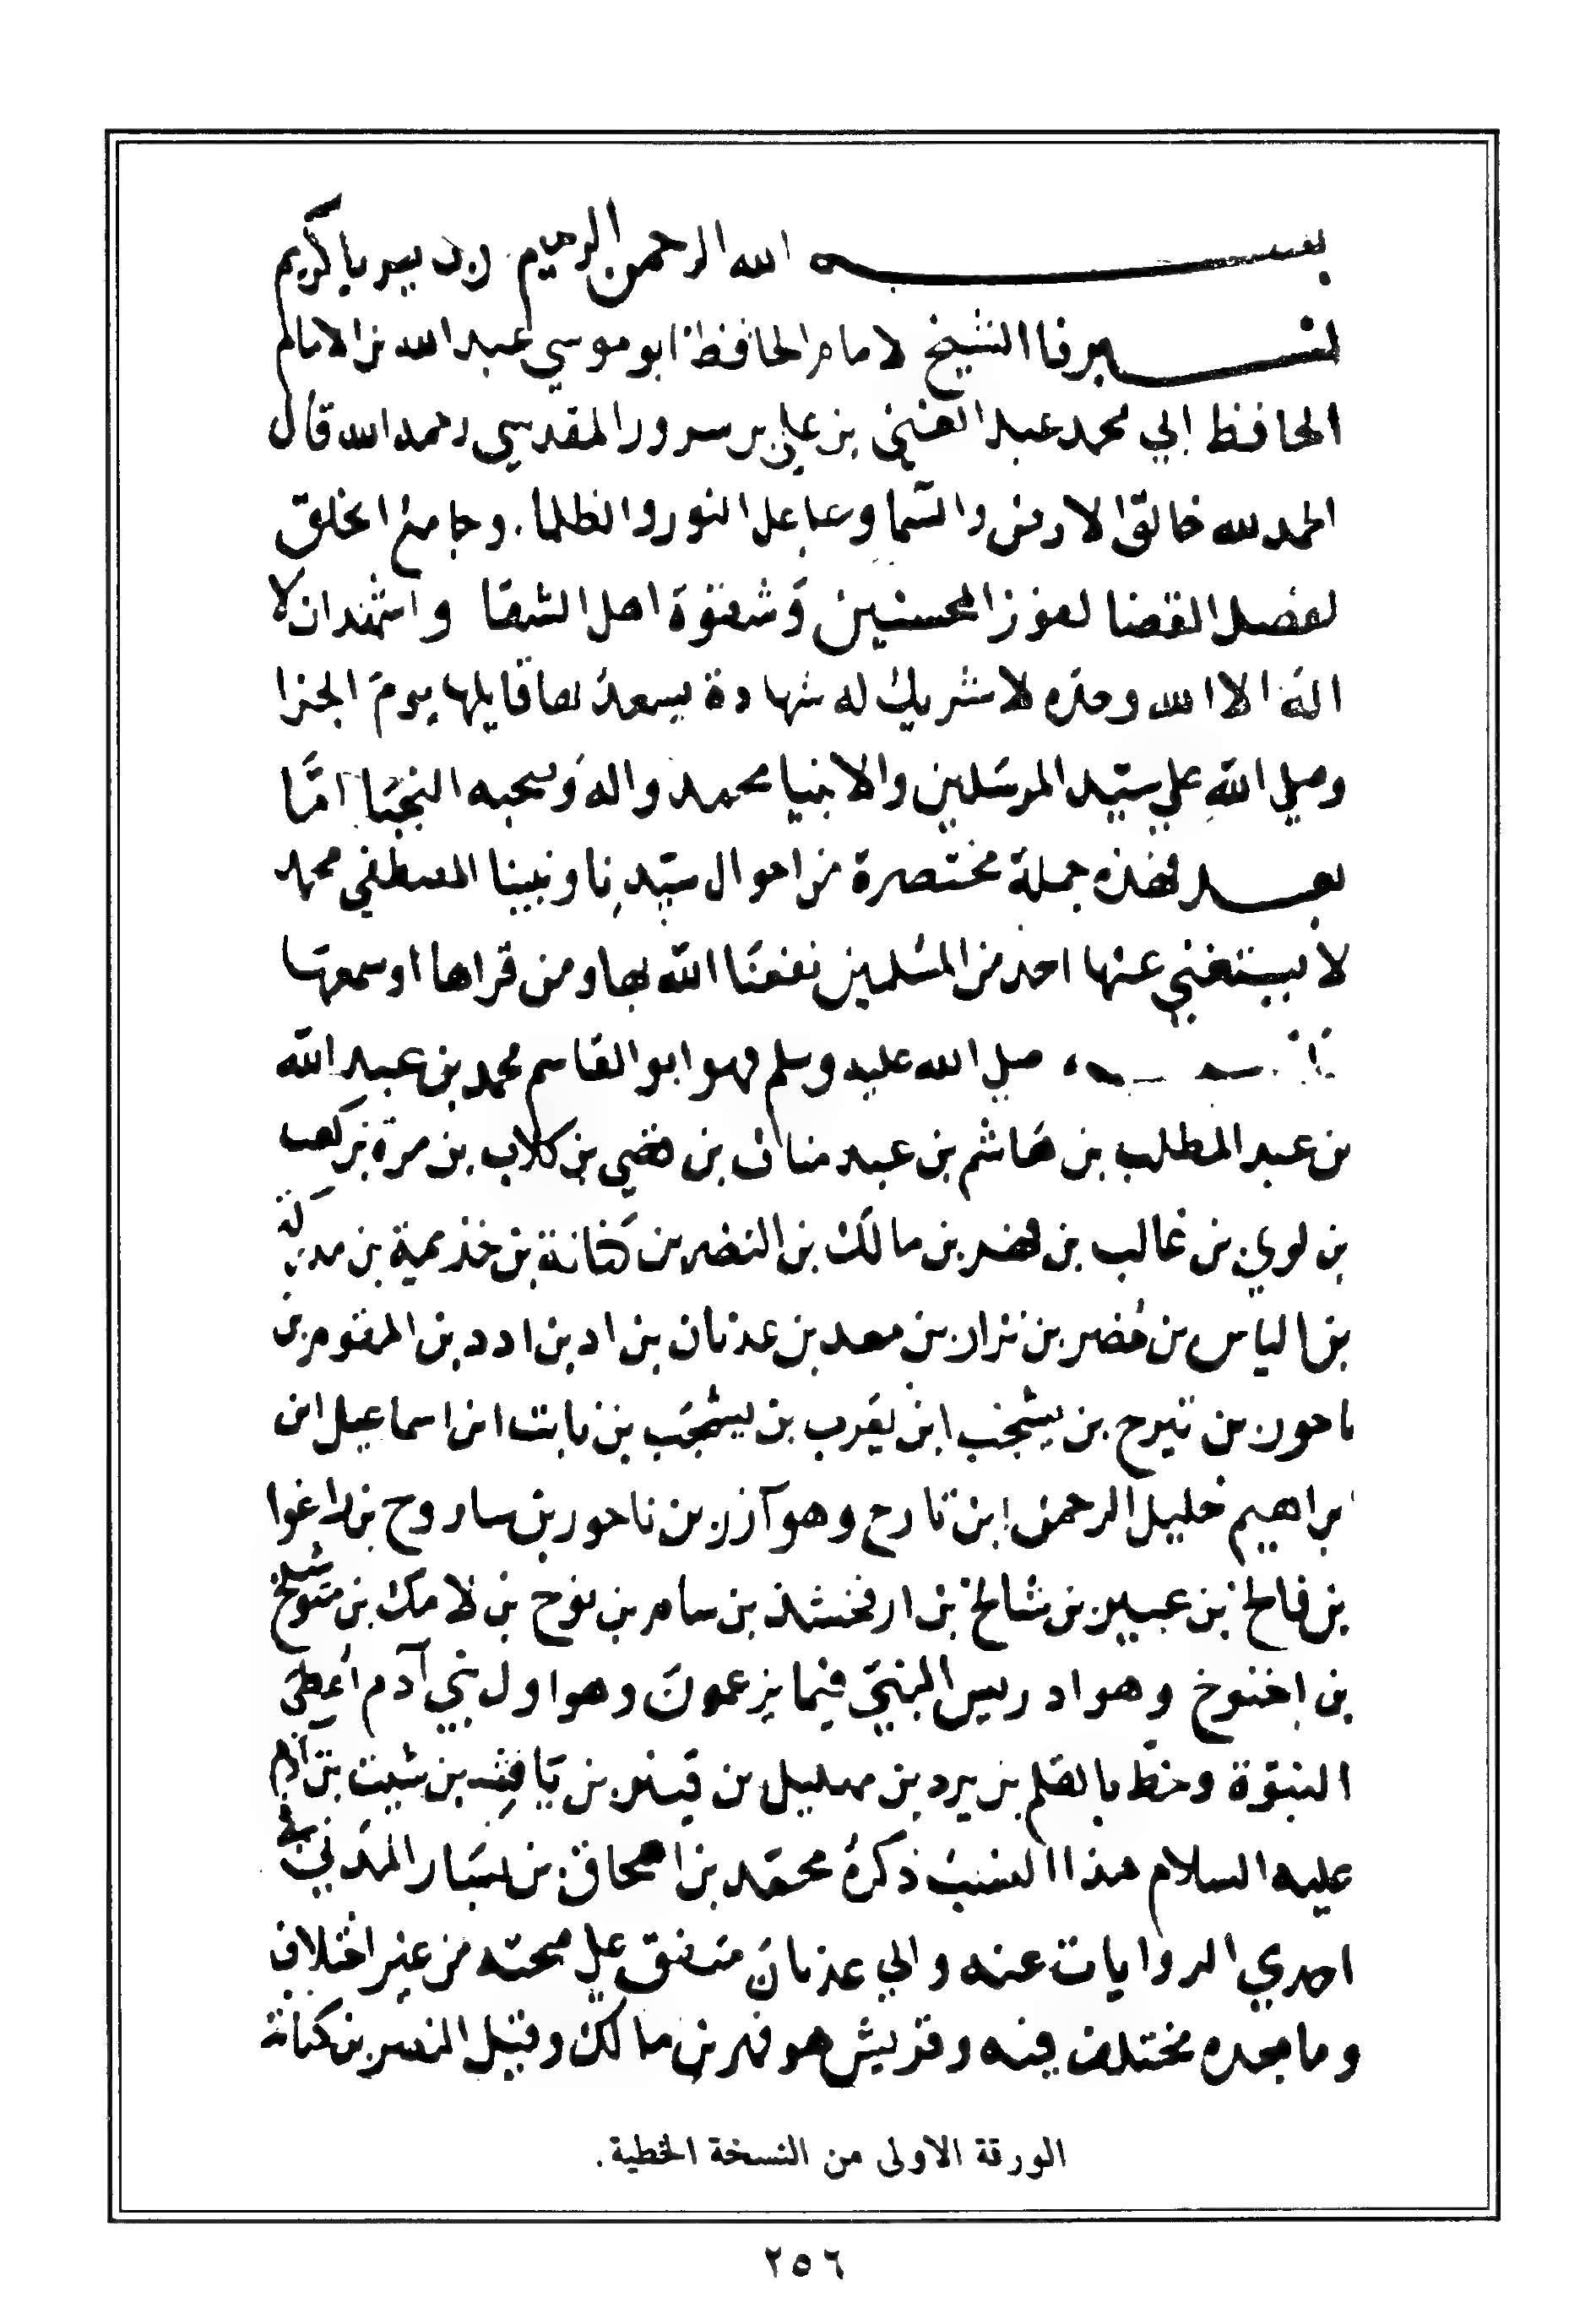 بسم الله الرحمن الرحيم رب يسر يا كريم
اخبرنا الشيخ الامام الحافظ ابو موسي عبد الله بن الامام
الحافظ ابي محمد عبد الغني بن علي بن سرور المقدسي رحمه الله قال
الحمد لله خالق الارض والسما وجاعل النور والظلما. وجامع الخلق
لفصل القضا لفوز المحسنين وشقوة اهل الشقا واشهد ان لا
اله الا الله وحده لا شريك له شهادة يسعد بها قايلها يوم الجزا
وصلي الله علي سيد المرسلين والانبيا محمد واله وصحبه النجبا امّا
بعد فهذه جملة مختصرة من احوال سيدنا ونبينا المصطفي محمد
لا يستغني عنها احد من المسلمين نفعنا الله بها ومن قراها او سمعها
صلي الله عليه وسلم فهو ابو القاسم محمد بن عبد الله
بن عبد المطلب بن هاشم بن عبد مناف بن قصي بن كلاب بن مرة بن كعب
بن لوي بن غالب بن فهر بن مالك بن النضر بن كنانة بن خذيمة بن مدركة
بن الياس بن مُضر بن نزار بن معد بن عدنان بن اد بن ادد بن المقوم بن
ناحور بن تيرح بن يشجب ابن يعرب بن يشجب بن نابت ابن اسماعيل ابن
ابراهيم خليل الرحمن ابن تارح وهو آزر بن ناحور بن ساروح بن راغوا
بن فالخ بن عيبر بن شالخ بن ارفخشذ بن سام بن نوح بن لامك بن متوشلخ
بن اخنوخ وهو ادريس النبيّ فيما يزعمون وهو اول بني آدم اُعطي
النبوّة وخطّ بالقلم بن يرد بن مهليل بن قينن بن يافث بن شيث بن آدم
عليه السلام هذا النسب ذكرهُ محمّد بن اسحاق بن يسَار المدَني في
احدي الروايات عنه والي عدنان متفق علي صحته من غير اختلاف
وما بعده مختلف فيه وقريش هو فهر بن مالك وقيل النضر بن كنانة
الورقة الاولى من النسخة الخطية.
٢٥٦